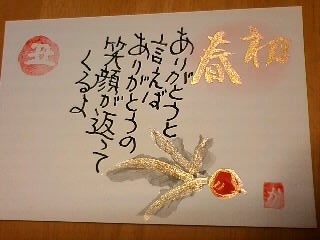 初春
ありがとうと
言えば
ありがとうの
笑顔が返って
くるよ
丑